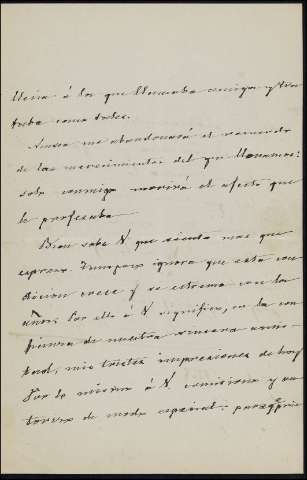 á los que llamaba amigos y tra
taba como tales.
Nunca me abandonará el recuerdo
de los merecimientos del que lloramos:
solo conmigo morirá el afecto que
le profesaba.
Bien sabe V. que siento mas que
expreso. Tampoco ignora que esta con
dicion crece y se extrema con los
años. Por ello á V. significo, en la con
fianza de nuestra sincera amis
tad, mis tristes impresiones de hoy
Por lo mismo á V. comisiono y au
torizo de modo especial: para q̃